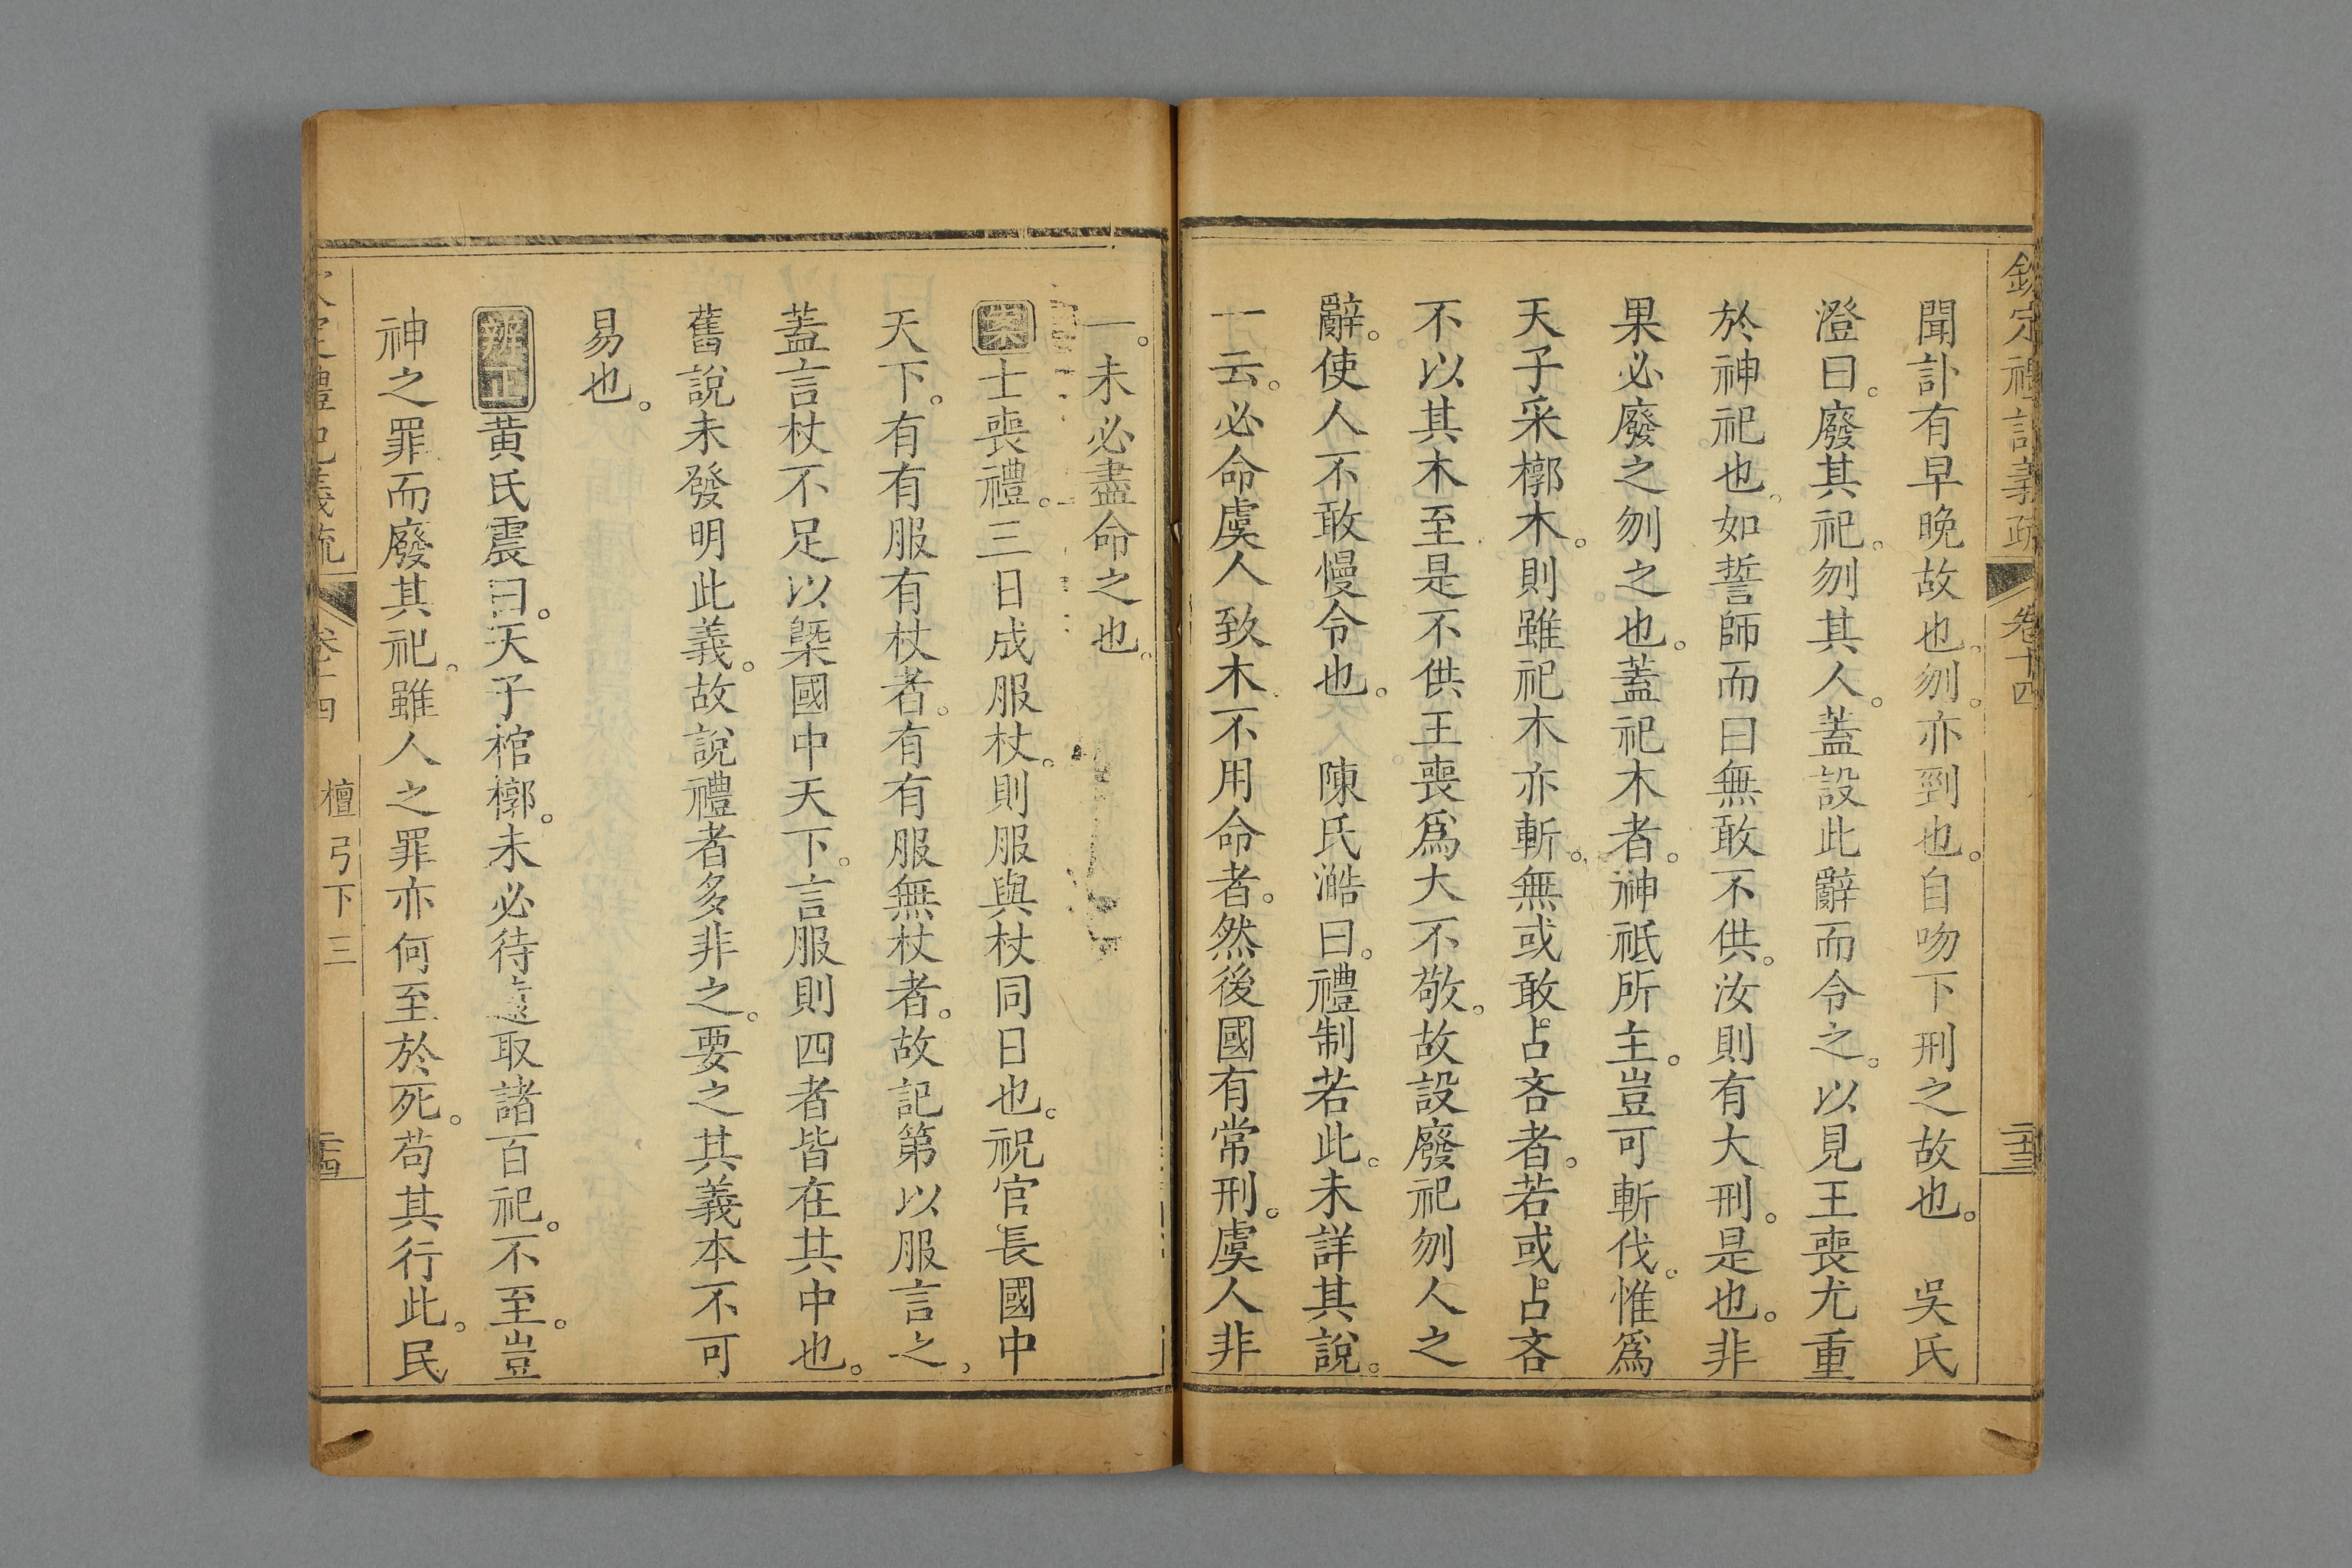 欽定禮記義疏 卷十四 二十三
聞訃有早晚故也。刎。亦剄也。自吻下刑之故也。 吳氏
澄曰。廢其祀。刎其人。蓋設此辭而令之。以見王喪尤重
於神祀也。如誓師而曰無敢不供。汝則有大刑。是也。非
果必廢之刎之也。蓋祀木者。神祇所主。豈可斬伐。惟爲
天子采槨木。則雖祀木亦斬。無或敢占吝者。若或占吝
不以其木至。是不供王喪爲大不敬。故設廢祀刎人之
辭。使人不敢慢令也。 陳氏澔曰。禮制若此。未詳其說。
一云。必命虞人致木。不用命者。然後國有常刑。虞人非
一。未必盡命之也。
案士喪禮。三日成服杖。則服與杖同日也。祝官長國中
天下。有有服有杖者。有有服無杖者。故記第以服言之、
蓋言杖不足以槩國中天下。言服則四者皆在其中也。
舊說未發明此義。故說禮者多非之。要之其義本不可
易也。
辨正黃氏震曰。天子棺槨。未必待遠取諸百祀。不至。豈
神之罪而廢其祀。雖人之罪亦何至於死。苟其行此。民
欽定禮記義疏 卷十四 檀弓下三 二十四